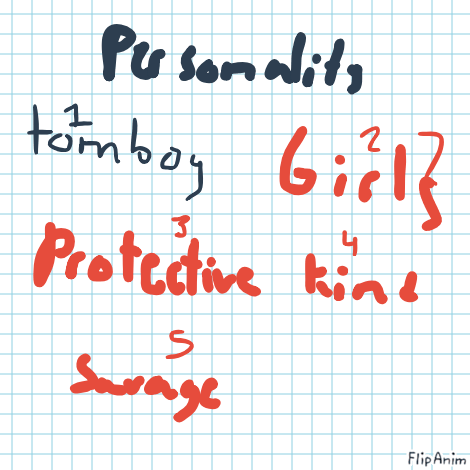 Personality
1 2
tomboy Girly
3 4
Protective kind
5
Savage
FlipAnim